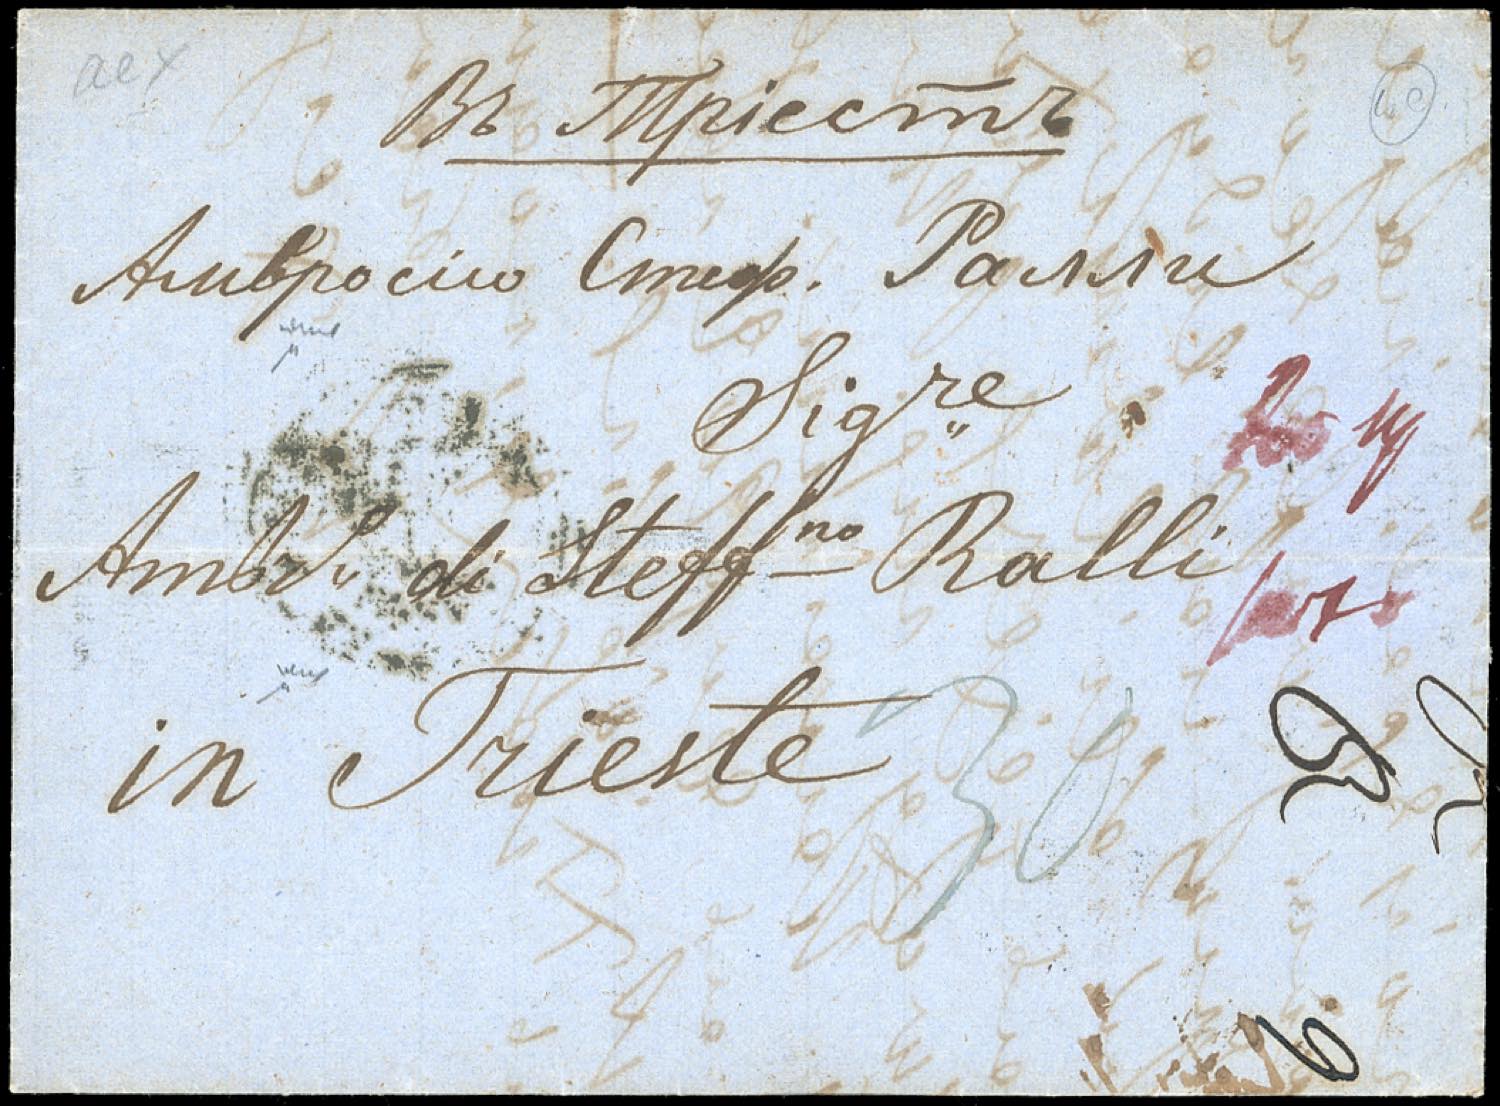 Въ Тріестъ
Амвросію Стеф. Ралли
Sigre
Ambr. di Steffno Ralli
in Trieste
30